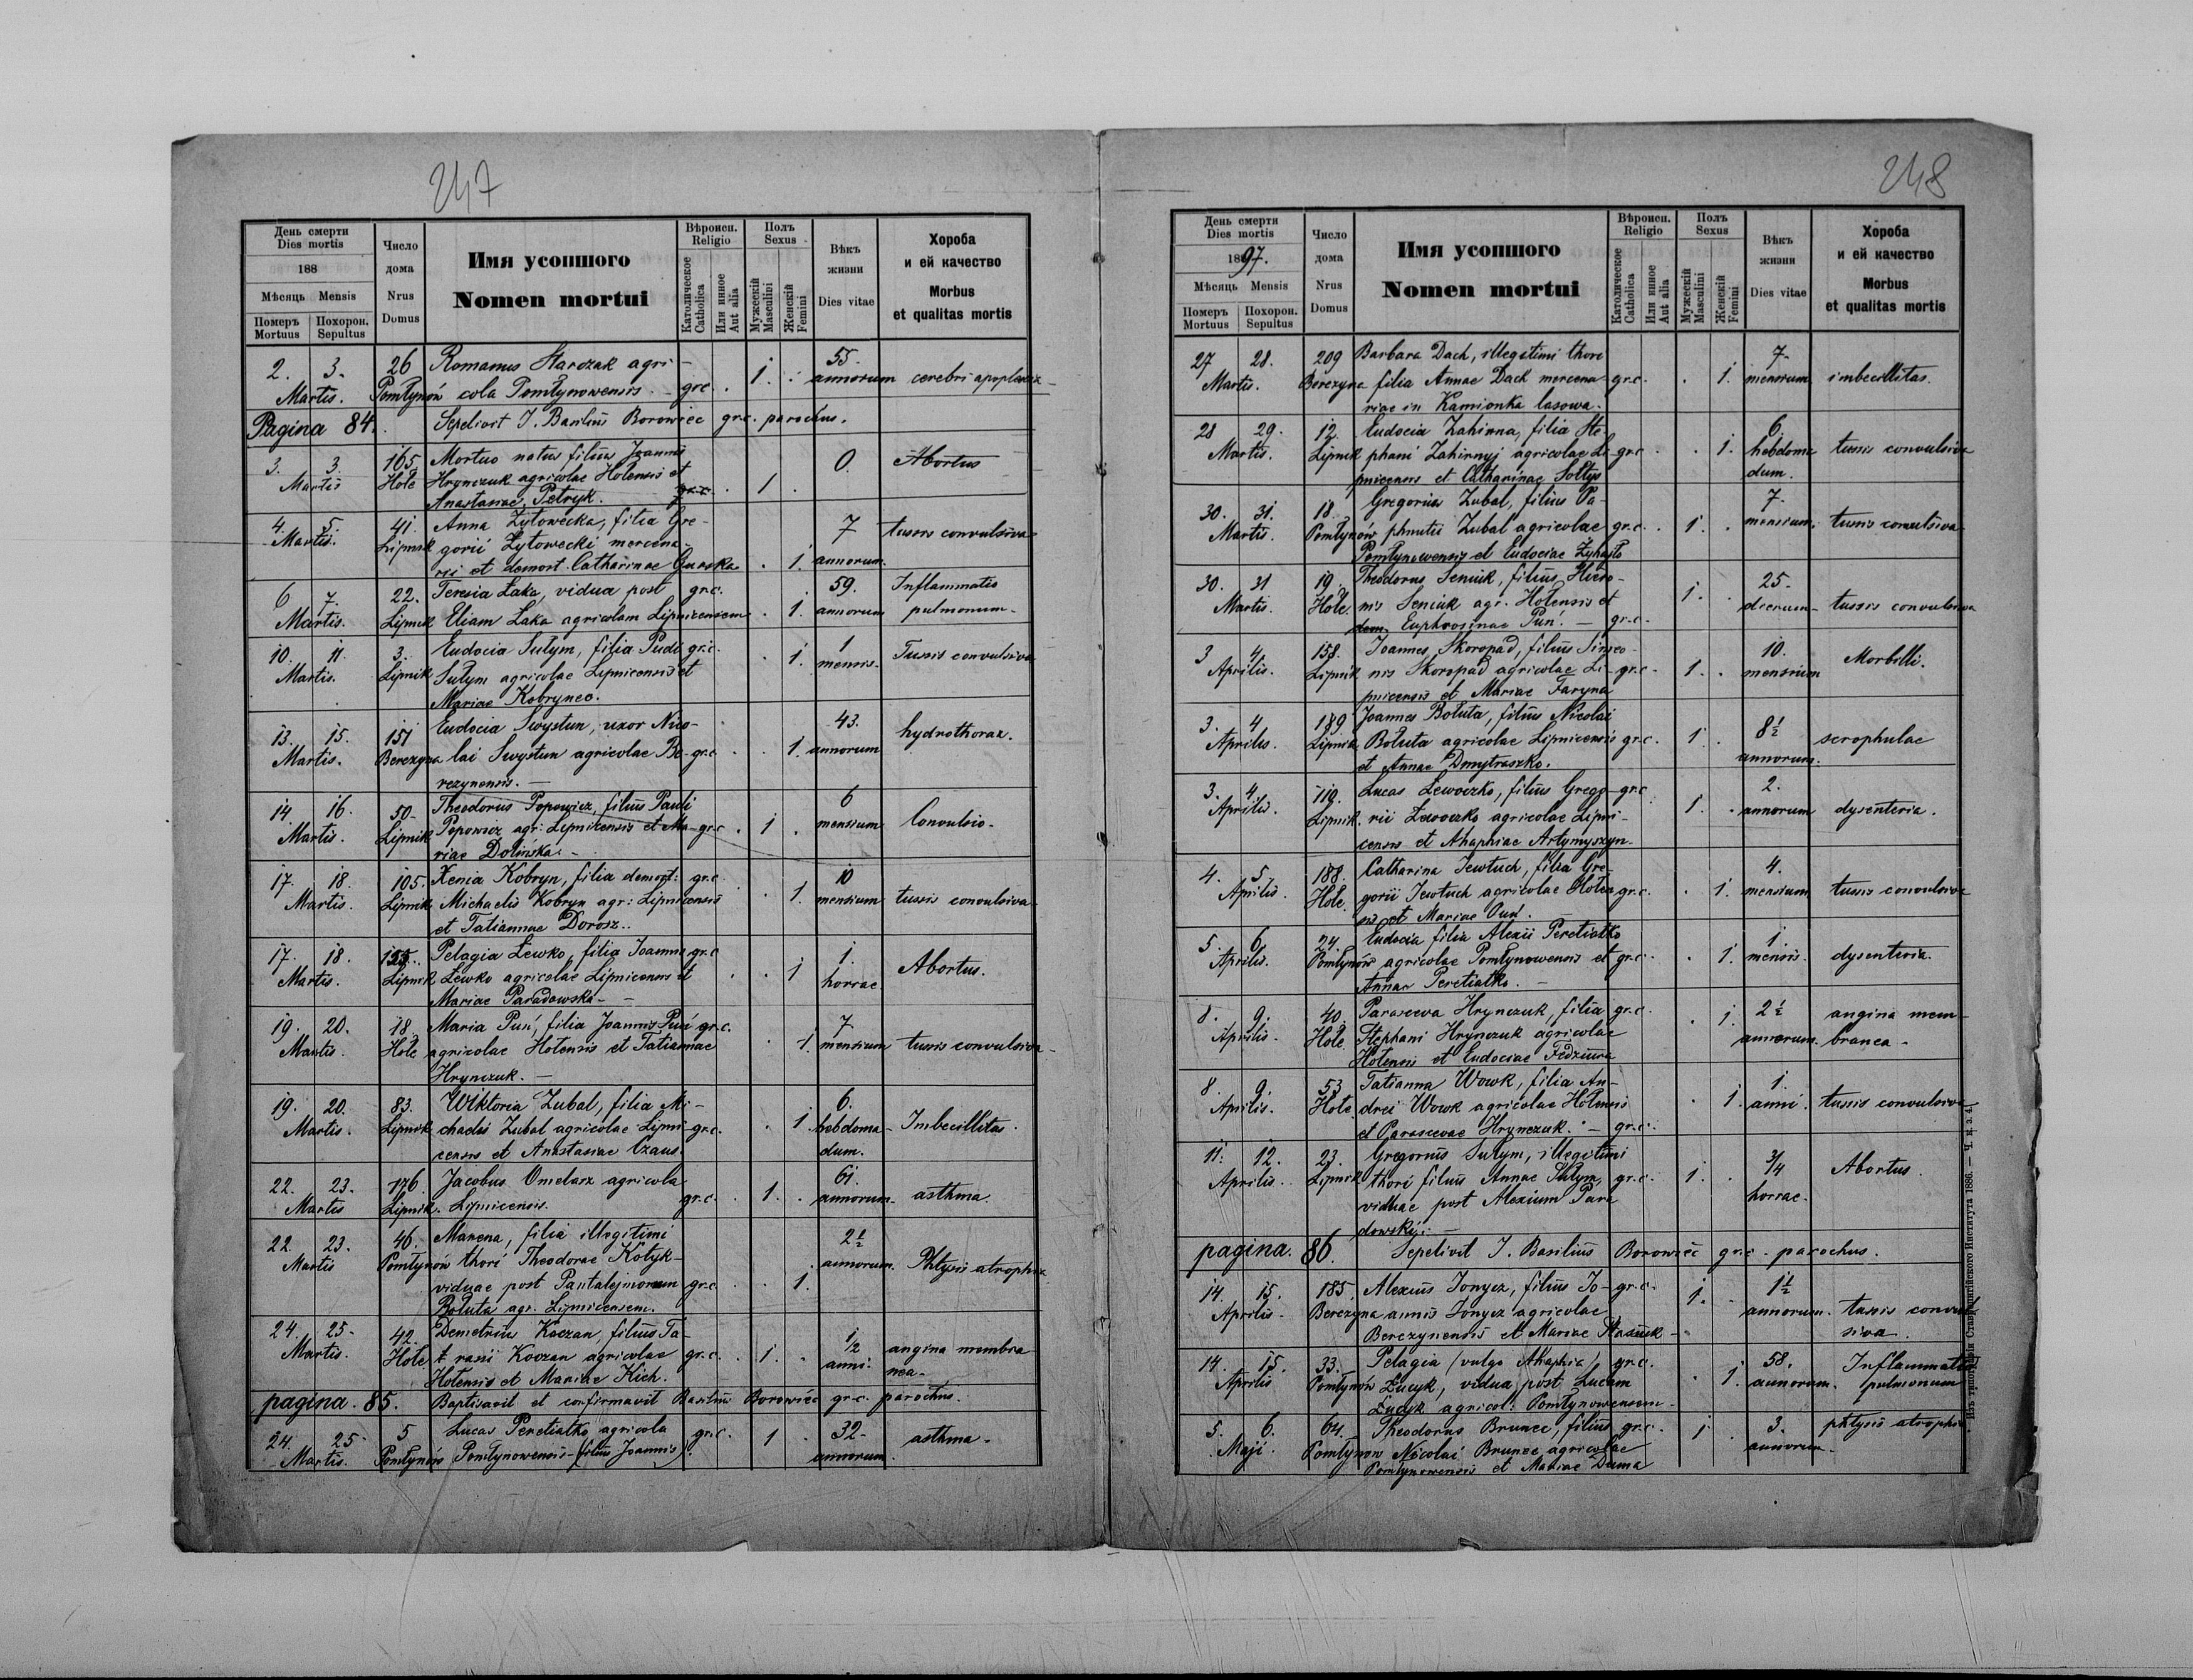 247
День смерти
Dies mortis
188
Мѣсяць Mensis
Померъ Похорон.
Mortuus Sepultus
Число
дома
Nrus
Domus
Имя усопшого
Nomen mortui
Вѣроисп.
Religio
Католическое
Catholica
Или инное
Aut alia
Полъ
Sexus
Мужескій
Masculini
Женскій
Femini
Вѣкъ
жизни
Dies vitae
Хороба
и ей качество
Morbus
et qualitas mortis
2. 3. 26 Romanus Harczak agri- 1. 55.
Martis. Pomłynów cola Pomłynowensis. grc. annorum cerebri
Pagina 84. Sepelivit J. Basilius Borowiec gr.c. parochus.
3. 3. 165. Mortuo natus filius Joannis 0. Abortus
Martis Hole Hrynczuk agricolae Holensis et 1
Anastasiae Petryk. gr.c.
4. 5. 41. Anna Żytowecka, filia Gre- 7 tussis convulsiva
Martis. Lipnik gorii Żytowecki mercena-
rii et demort. Catharinae 1. annorum.
6 7. 22. Teresia Łaka, vidua post gr.c. 59. Inflammatio
Martis. Lipnik Eliam Łaka agricolam Lipnicensem 1. annorum pulmonum.
10. 11. 3. Eudocia Sułym, filia gr.c. 1. 1 Tussis convulsiva
Martis. Lipnik Sułym agricolae Lipnicensis et mensis.
Mariae Kobrynec.
13. 15. 151 Eudocia Swystun, uxor Nico- 43. hydrothorax.
Martis. Berezyna lai Swystun agricolae Be- gr.c. 1. annorum
rezynensis.
14. 16. 50. Theodorus Popowicz, filius Pauli 6
Martis. Lipnik Popowicz agr. Lipnicensis et Ma- gr.c. 1 mensium Convulsio.
riae Dolińska.
17. 18. 105. Xenia Kobryn, filia demort: gr.c. 10
Martis. Lipnik Michaelis Kobryn agr: Lipnicensis 1. mensium tussis convulsiva
et Tatiannae Dorosz..
17. 18. Pelagia Lewko, filia Joannis gr.c 1. Abortus.
Martis. Lipnik Lewko agricolae Lipnicensis et 1 horrae
Mariae Paradowska
19. 20. 18. Maria Puń, filia Joannis Puń gr.c. 7.
Martis. Hole agricolae Holensis et Tatiannae 1. mensium tussis convulsiva
Hrynczuk.
19. 20. 83. Wiktoria Zubal, filia Mi- 6.
Martis. Lipnik chaelis Zubal agricolae Lipni- gr.c. 1 hebdoma- Imbecillitas.
censis et Anastasiae Czaus. dum.
22. 23. 176 Jacobus Omelarz agricola 61.
Martis Lipnik. Lipnicensis. gr.c. 1. annorum. asthma.
22. 23. 46. filia illegitimi 2½
Martis Pomłynów thori Theodorae Kotyk annorum. Phtysis atrophia
viduae post Pantalejmonem gr.c. 1.
Bołuta agr. Lipnicensem.
24. 25. 42. Demetrius Koczan, filius Ta- ½ angina membra
Martis. Hole. rasii Koczan agricolae gr.c. 1. anni. nea.
Holensis et Mariae Kich.
pagina. 85. Baptisavit et confirmavit Basilius Borowiec gr.c. parochus.
24. 25 5 Lucas Peretiatko agricola gr.c. 1 32. asthma.
Martis. Pomłynów Pomłynowensis (filius Joannis) annorum.
248
День смерти
Dies mortis
1897.
Мѣсяць Mensis
Померъ Похорон.
Mortuus Sepultus
Число
дома
Nrus
Domus
Имя усопшого
Nomen mortui
Вѣроисп.
Religio
Католическое
Catholica
Или инное
Aut alia
Полъ
Sexus
Мужескій
Masculini
Женскій
Femini
Вѣкъ
жизни
Dies vitae
Хороба
и ей качество
Morbus
et qualitas mortis
27 28. 209 Barbara Dach, illegitimi thori 7.
Martis. Berezyna filia Annae Dach mercena- gr.c. 1. mensium imbecillitas.
riae in Kamionka lasowa.
28 29. 12. Eudocia Zahirna, filia Ste- 6.
Martis. Lipnik phani Zahirnyj agricolae Li- gr.c 1. hebdoma tussis convulsiva
pnicensis et Catharinae Sołtys dum.
30. 31. 18. Gregorius Zubal, filius Pa- 7.
Martis. Pomłynów phnutii Zubal agricolae gr.c. 1. mensium. tussis convulsiva
Pomłynowensis et Eudociae Żyhajło
30. 31 19. Theodorus Seniuk, filius Hiero- 1. 25.
Martis. Hole. nis Seniuk agr. Holensis et dierum. tussis convulsiva
Euphrosinae Puń. gr.c.
3 4. 158. Joannes Skoropad, filius Simeo- 10. Morbilli.
Aprilis. Lipnik nis Skoropad agricolae Li- gr.c. 1. mensium
pnicensis et Mariae Faryna
3. 4. 189. Joannes Bołuta, filius Nicolai 8½
Aprilis. Lipnik Bołuta agricolae Lipnicensis gr.c. 1. scrophulae
et Annae Dmytraszko. annorum.
3. 4. 119. Lucas Lewoczko, filius Grego- gr.c 2.
Aprilis. Lipnik. rii Lewoczko agricolae Lipni- 1. annorum dysenteria.
censis et Ahaphiae Artymyszyn.
4. 5. 188. Catharina Jewtuch, filia Gre- 4.
Aprilis. Hole. gorii Jewtuch agricolae Holen gr.c. 1. mensium tussis convulsiva
sis et Mariae
5. 6. 24. Eudocia filia Alexii Peretiatko 1.
Aprilis. Pomłynów agricolae Pomłynowensis et gr.c. 1. mensis. dysenteria.
Annae Peretiatko.
8. 9. 40. Parascewa Hrynczuk, filia gr.c. 1. 2½ angina mem-
Aprilis. Hole. Stephani Hrynczuk agricolae annorum. branea.
Holensis et Eudociae Fedziura
8. 9. 53 Tatianna Wowk, filia An- 1.
Aprilis. Hole. drei Wowk agricolae Holensis 1. anni. tussis convulsiva
et Parascevae Hrynczuk. gr.c.
11. 12. 23. Gregorius Sułym, illegitimi 3/4 Abortus.
Aprilis. Lipnik thori filius Annae Sułym, gr.c. 1. horrae.
viduae post Alexium Para
dowski.
pagina. 86. Sepelivit J. Basilius Borowiec gr.c. parochus.
14. 15. 185. Alexius Jonycz, filius Jo- gr.c. 1. 1½
Aprilis. Berezyna annis Jonycz agricolae annorum. tussis convul
Berezynensis et Mariae siva.
14. 15. 33. Pelagia (vulgo Ahaphia) gr.c. 58. Inflammatio
Aprilis Pomłynów Łucyk, vidua post Lucam 1. annorum. pulmonum
Łucyk agricol: Pomłynowensem.
5. 6. 64. Theodorus Brunec, filius gr.c. 1 3. phtysis atrophia
Maji Pomłynow Nicolai Brunec agricolae annorum.
Pomłynowensis et Mariae Duma
Изъ типографіи Ставропигійского Института 1886. — Ч. и з. 4.